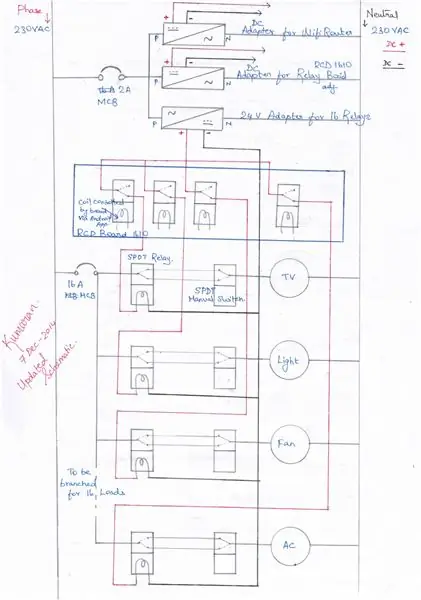 Phase
230VAC
+
-
DC
Adapter for Wifi Router
P
N
Neutral
230 VAC
x +
x -
+
-
DC
Adapter for Relay Board
RCD 1610
P
N
2A
MCB
24V Adapter for 16 Relays
P
N
+
-
Coil controlled
by board
via Android
App
RCD Board 1610
16A
MCB
SPDT Relay
SPDT
Manual Switch
TV
Kumaran
7 Dec-2014
Updated
Schematic
Light
Fan
To be
branched
for 16 Loads
AC